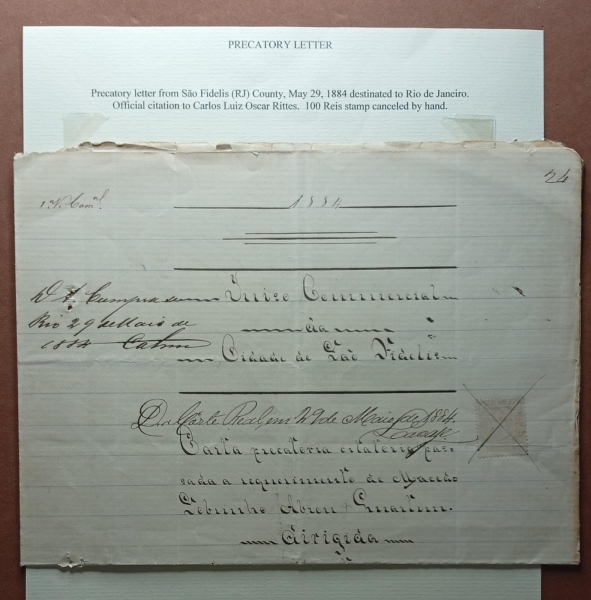 PRECATORY LETTER
Precatory letter from São Fidelis (RJ) County, May 29, 1884 destinated to Rio de Janeiro.
Official citation to Carlos Luiz Oscar Rittes. 100 Reis stamp canceled by hand.
24
1884
Juizo Commercial
da
Cidade de São Fidelis
Cumpra-se
Rio 29 de Maio de
1884
29 de Maio de 1884
Carta precatoria citatoria pas-
sada a requerimento de Macedo
Sobrinho Abreu &
dirigida